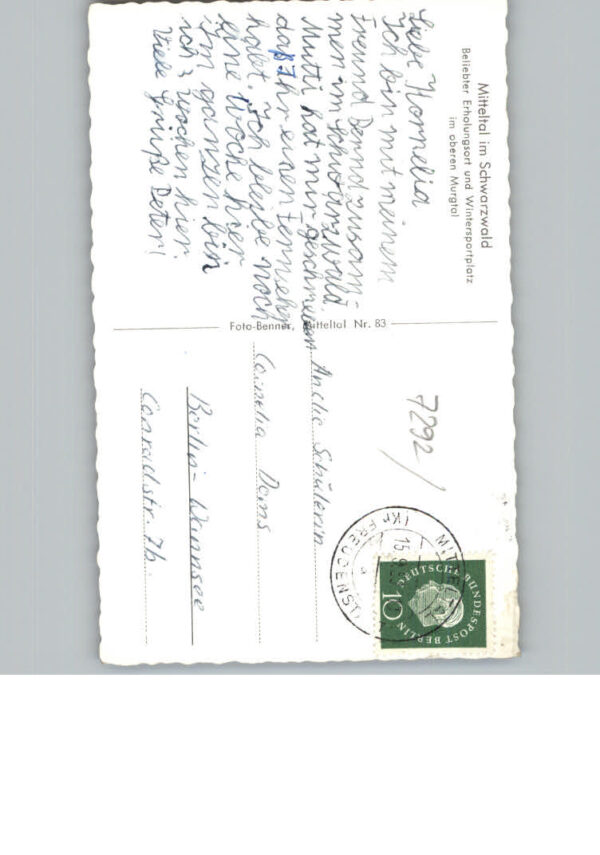 Mitteltal im Schwarzwald
Beliebter Erholungsort und Wintersportplatz
im oberen Murgtal
Liebe Kornelia
Ich bin mit meinem
Freund Bernd zusam-
men im Schwarzwald.
Mutti hat mir geschrieben
daß Ihr einen Fernseher
habt. Ich bleibe noch
eine Woche hier
Im ganzen bin
ich 3 Wochen hier.
Viele Grüße Peter!
Foto-Benner, Mitteltal Nr. 83
7292/
(Kr. FREUDENST
15.9.
DEUTSCHE BUNDESPOST BERLIN
10
An die Schülerin
Cornelia Doms
Berlin-Wannsee
Conradstr. 7b.